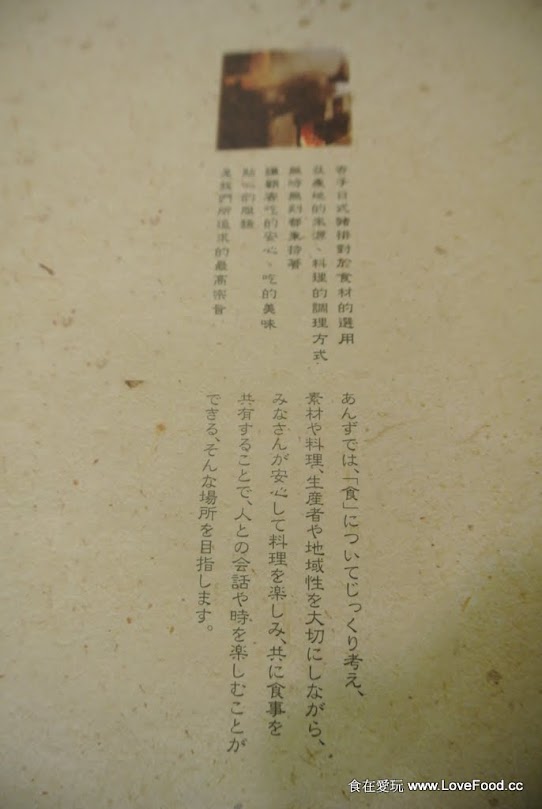 杏子日式豬排對於食材的選用
從產地的來源、料理的調理方式
無時無刻都秉持著
讓顧客吃的安心、吃的美味
貼心的服務
是我們所追求的最高宗旨
あんずでは、「食」についてじっくり考え、
素材や料理、生産者や地域性を大切にしながら、
みなさんが安心して料理を楽しみ、共に食事を
共有することで、人との会話や時を楽しむことが
できる、そんな場所を目指します。
食在愛玩 www.LoveFood.cc